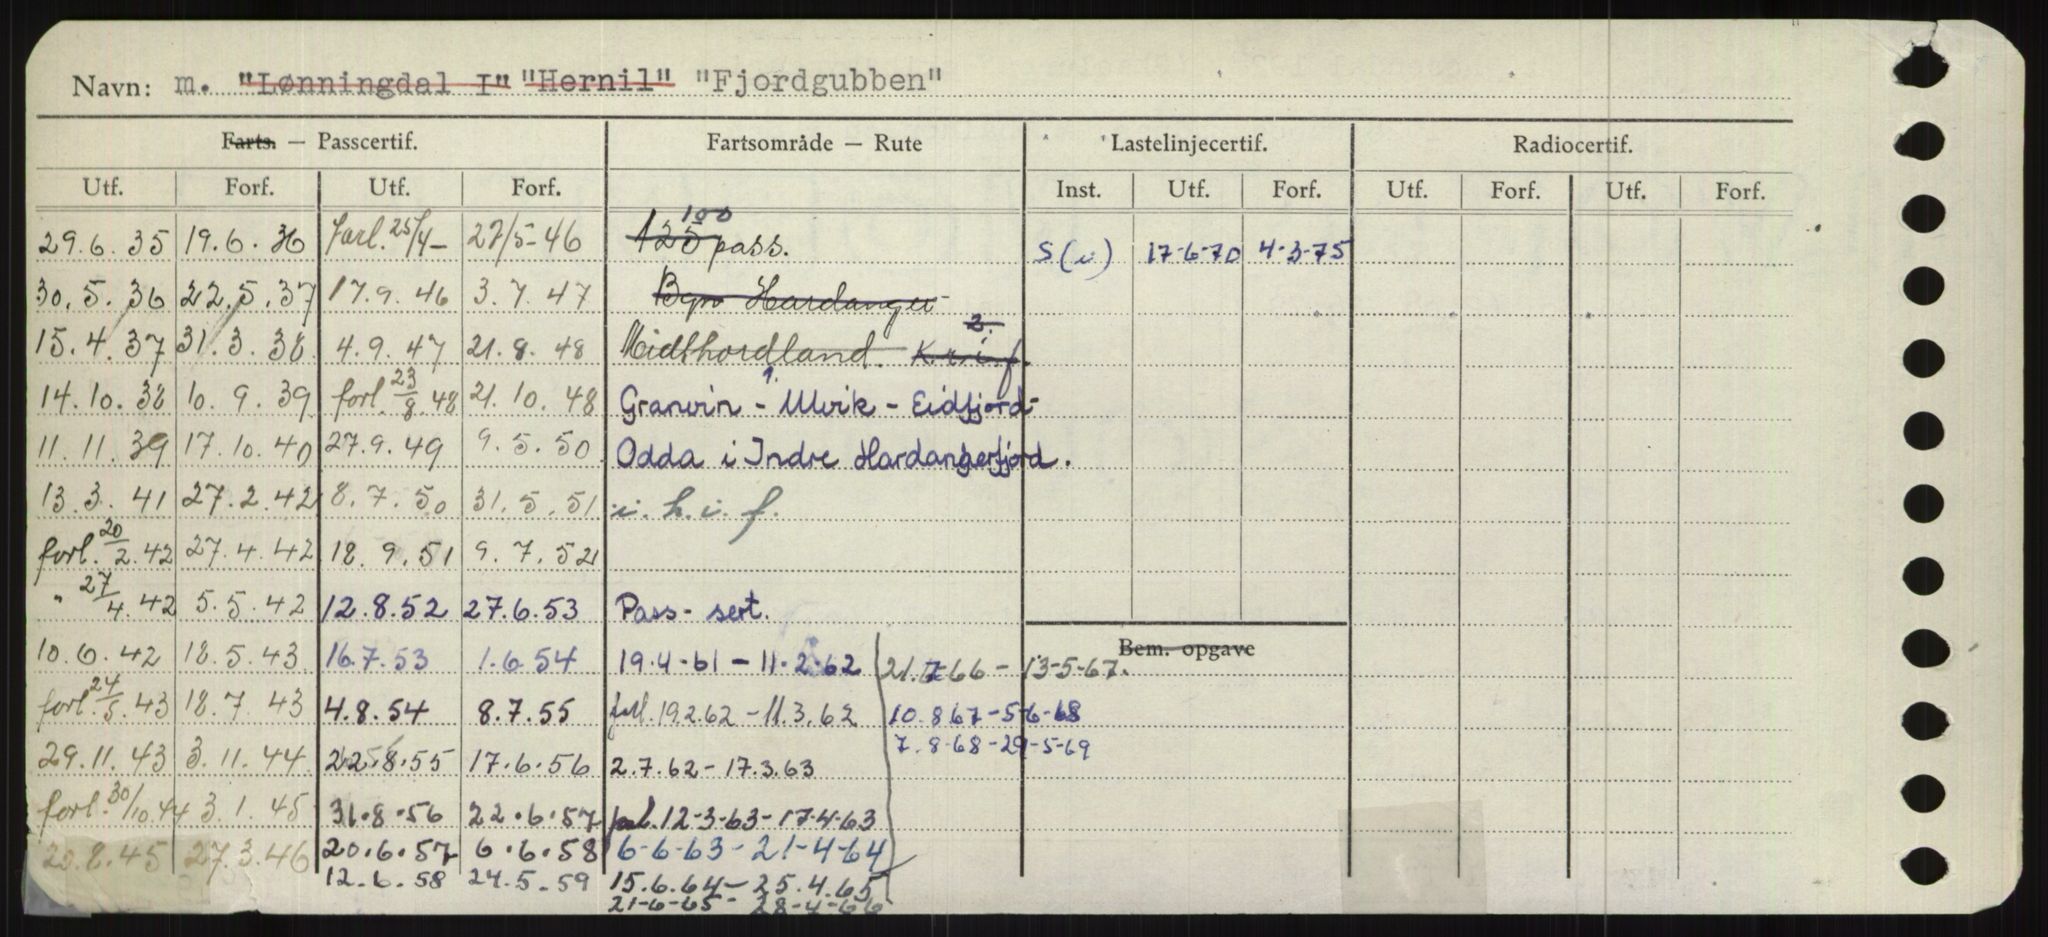 Navn: m. "Lønningdal I" "Hernil" "Fjordgubben"
Farts. — Passcertif. Fartsområde — Rute Lastelinjecertif. Radiocertif.
Utf. Forf. Utf. Forf. Inst. Utf. Forf. Utf. Forf. Utf. Forf.
29.6.35 19.6.36 forl. 25/4- 27/5-46 125 100 pass. S(i) 17-6-70 4-3-75
30.5.36 22.5.37 17.9.46 3.7.47 Bgn Hardanger
15.4.37 31.3.38 4.9.47 21.8.48 Midthordland. K.r.i.f. 2.
14.10.38 10.9.39 forl. 23/8.48 21.10.48 Granvin - Ulvik - Eidfjord-
11.11.39 17.10.40 27.9.49 9.5.50 Odda i Indre Hardangerfjord.
13.3.41 27.2.42 8.7.50 31.5.51 i. h. i. f.
forl. 20/2.42 27.4.42 18.9.51 9.7.52
" 27/4.42 5.5.42 12.8.52 27.6.53 Pass- sert.
Bem. opgave
10.6.42 18.5.43 16.7.53 1.6.54 19.4-61 - 11.2.62 21.7.66 - 13-5-67.
forl. 24/5.43 18.7.43 4.8.54 8.7.55 forl. 19.2.62 - 11.3.62 10.8.67-5-6-68
7.8-68-29-5-69
29.11.43 3.11.44 22.8.55 17.6.56 2.7.62 - 17.3.63
forl. 30/10.44 3.1.45 31.8.56 22.6.57 forl. 12-3-63 - 17-4-63
20.8.45 27.3.46 20.6.57 6.6.58 6-6-63 - 21-4-64
12.6.58 24.5.59 15.6.64 - 25.4.65
21-6-65 - 28-4-66